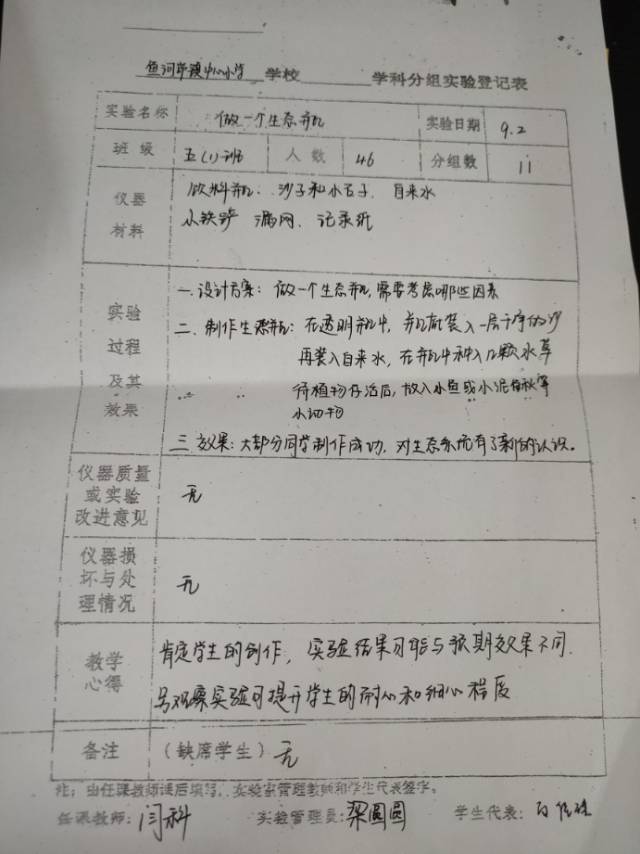 鱼河峁镇中心小学 学校 学科分组实验登记表
实验名称 做一个生态瓶 实验日期 9.2
班级 五(1)班 人数 46 分组数 11
仪器材料 饮料瓶、沙子和小石子、自来水
小铁铲 漏网、记录纸
实验过程及其效果 一.设计方案:做一个生态瓶,需要考虑哪些因素
二、制作生态瓶:在透明瓶中,瓶底装入一层干净的沙
再装入自来水,在瓶中种入几颗水草
待植物存活后,放入小鱼或小泥鳅等
小动物
三.效果:大部分同学制作成功,对生态系统有了新的认识。
仪器质量或实验改进意见 无
仪器损坏与处理情况 无
教学心得 肯定学生的创作,实验结果可能与预期效果不同.
观察实验可提升学生的耐心和细心程度
备注 (缺席学生)无
注:由任课教师课后填写,实验室管理教师和学生代表签字。
任课教师:闫科 实验管理员:梁圆圆 学生代表: